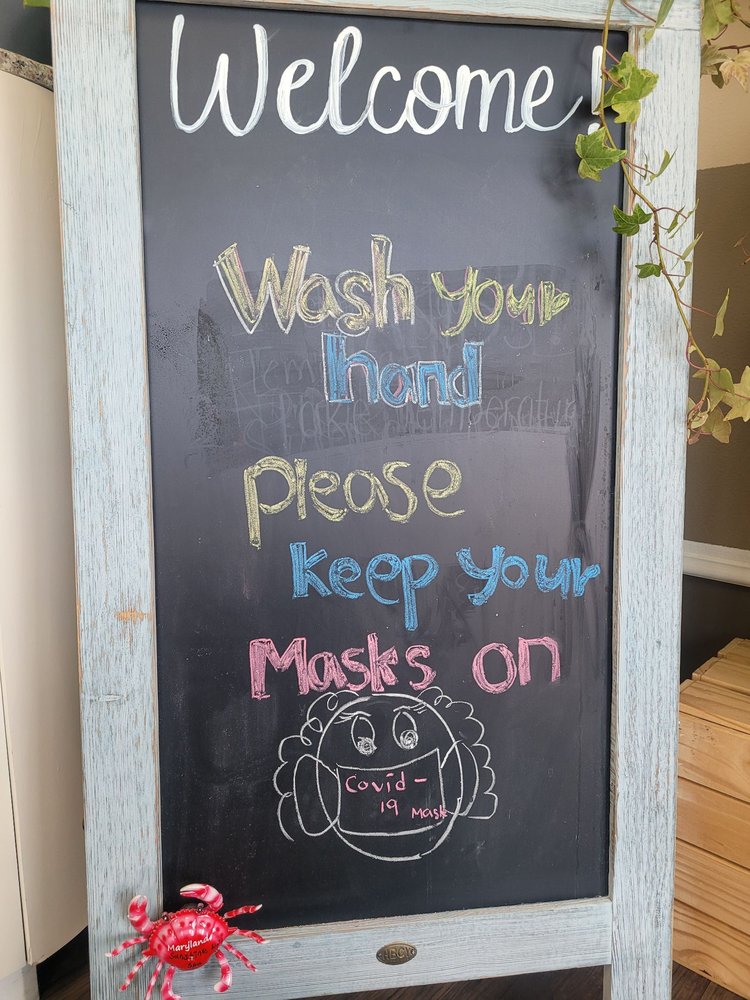 Welcome!
Wash your
hand
Please
keep your
Masks on
Covid-
19 Mask
Maryland